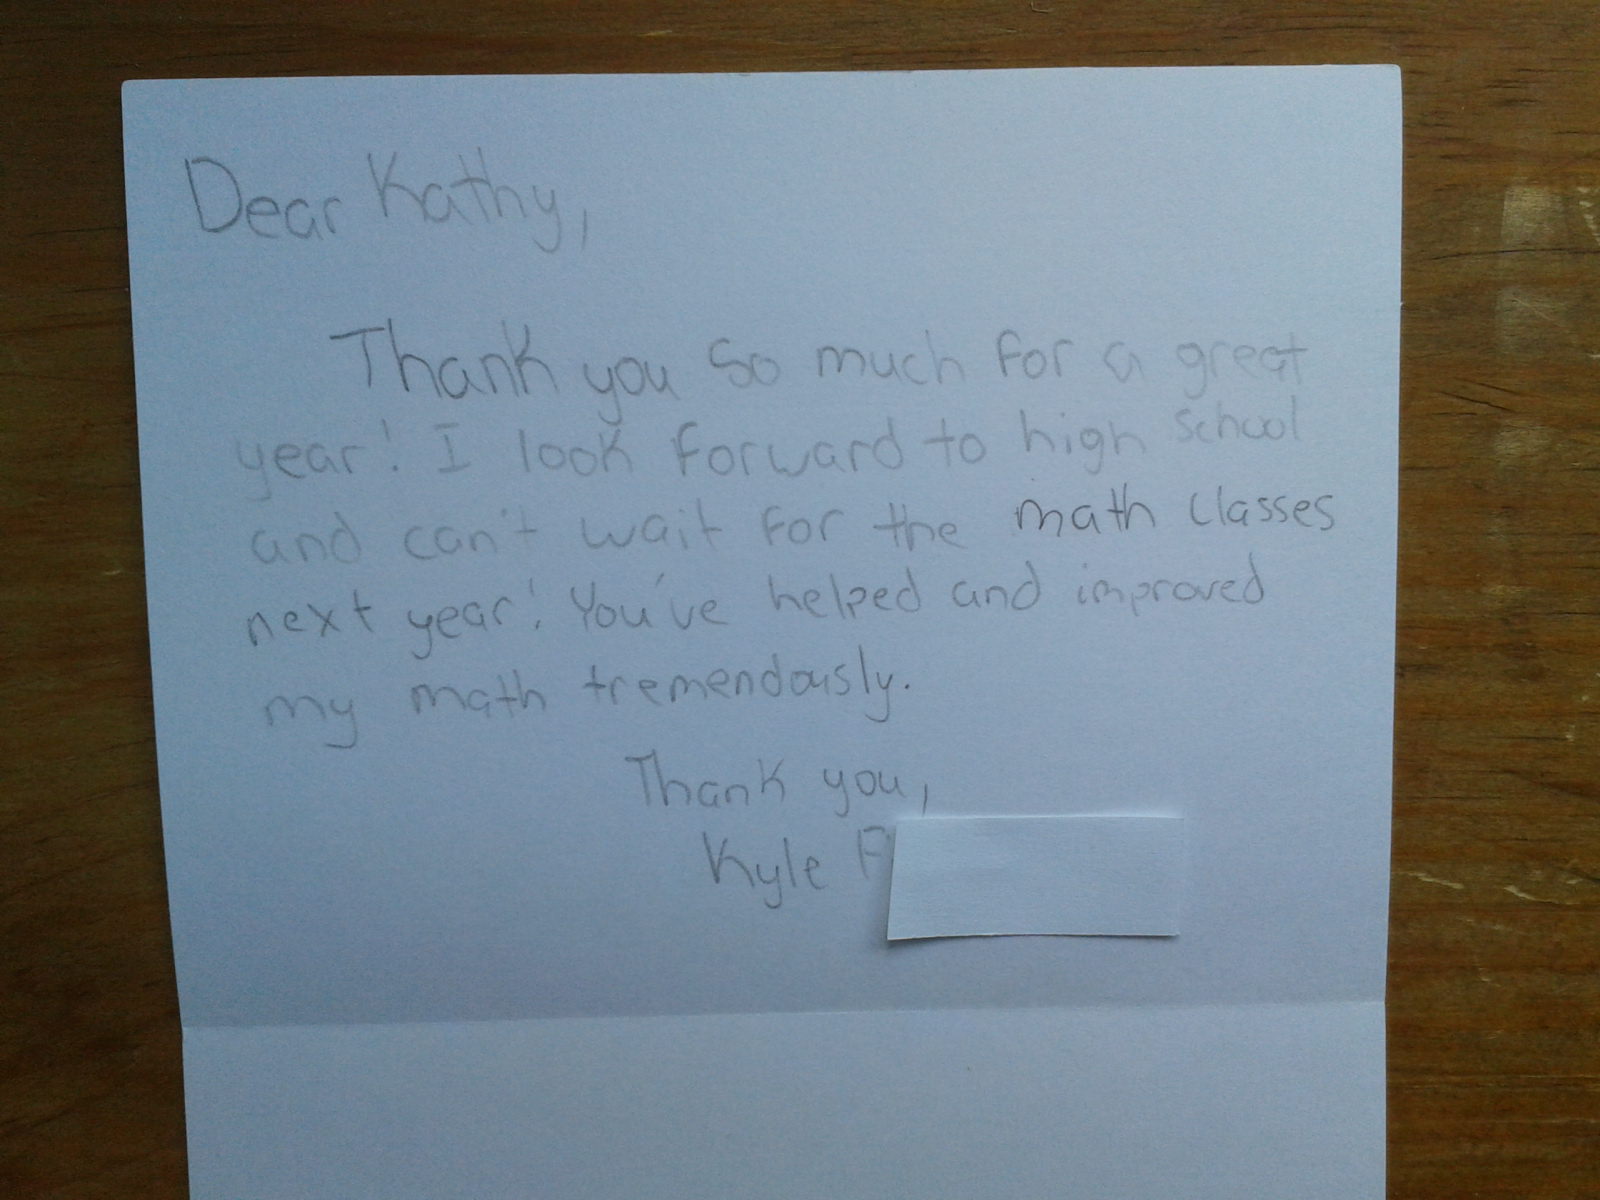 Dear Kathy,
Thank you so much for a great
year! I look forward to high school
and can't wait for the math classes
next year! You've helped and improved
my math tremendously.
Thank you,
Kyle